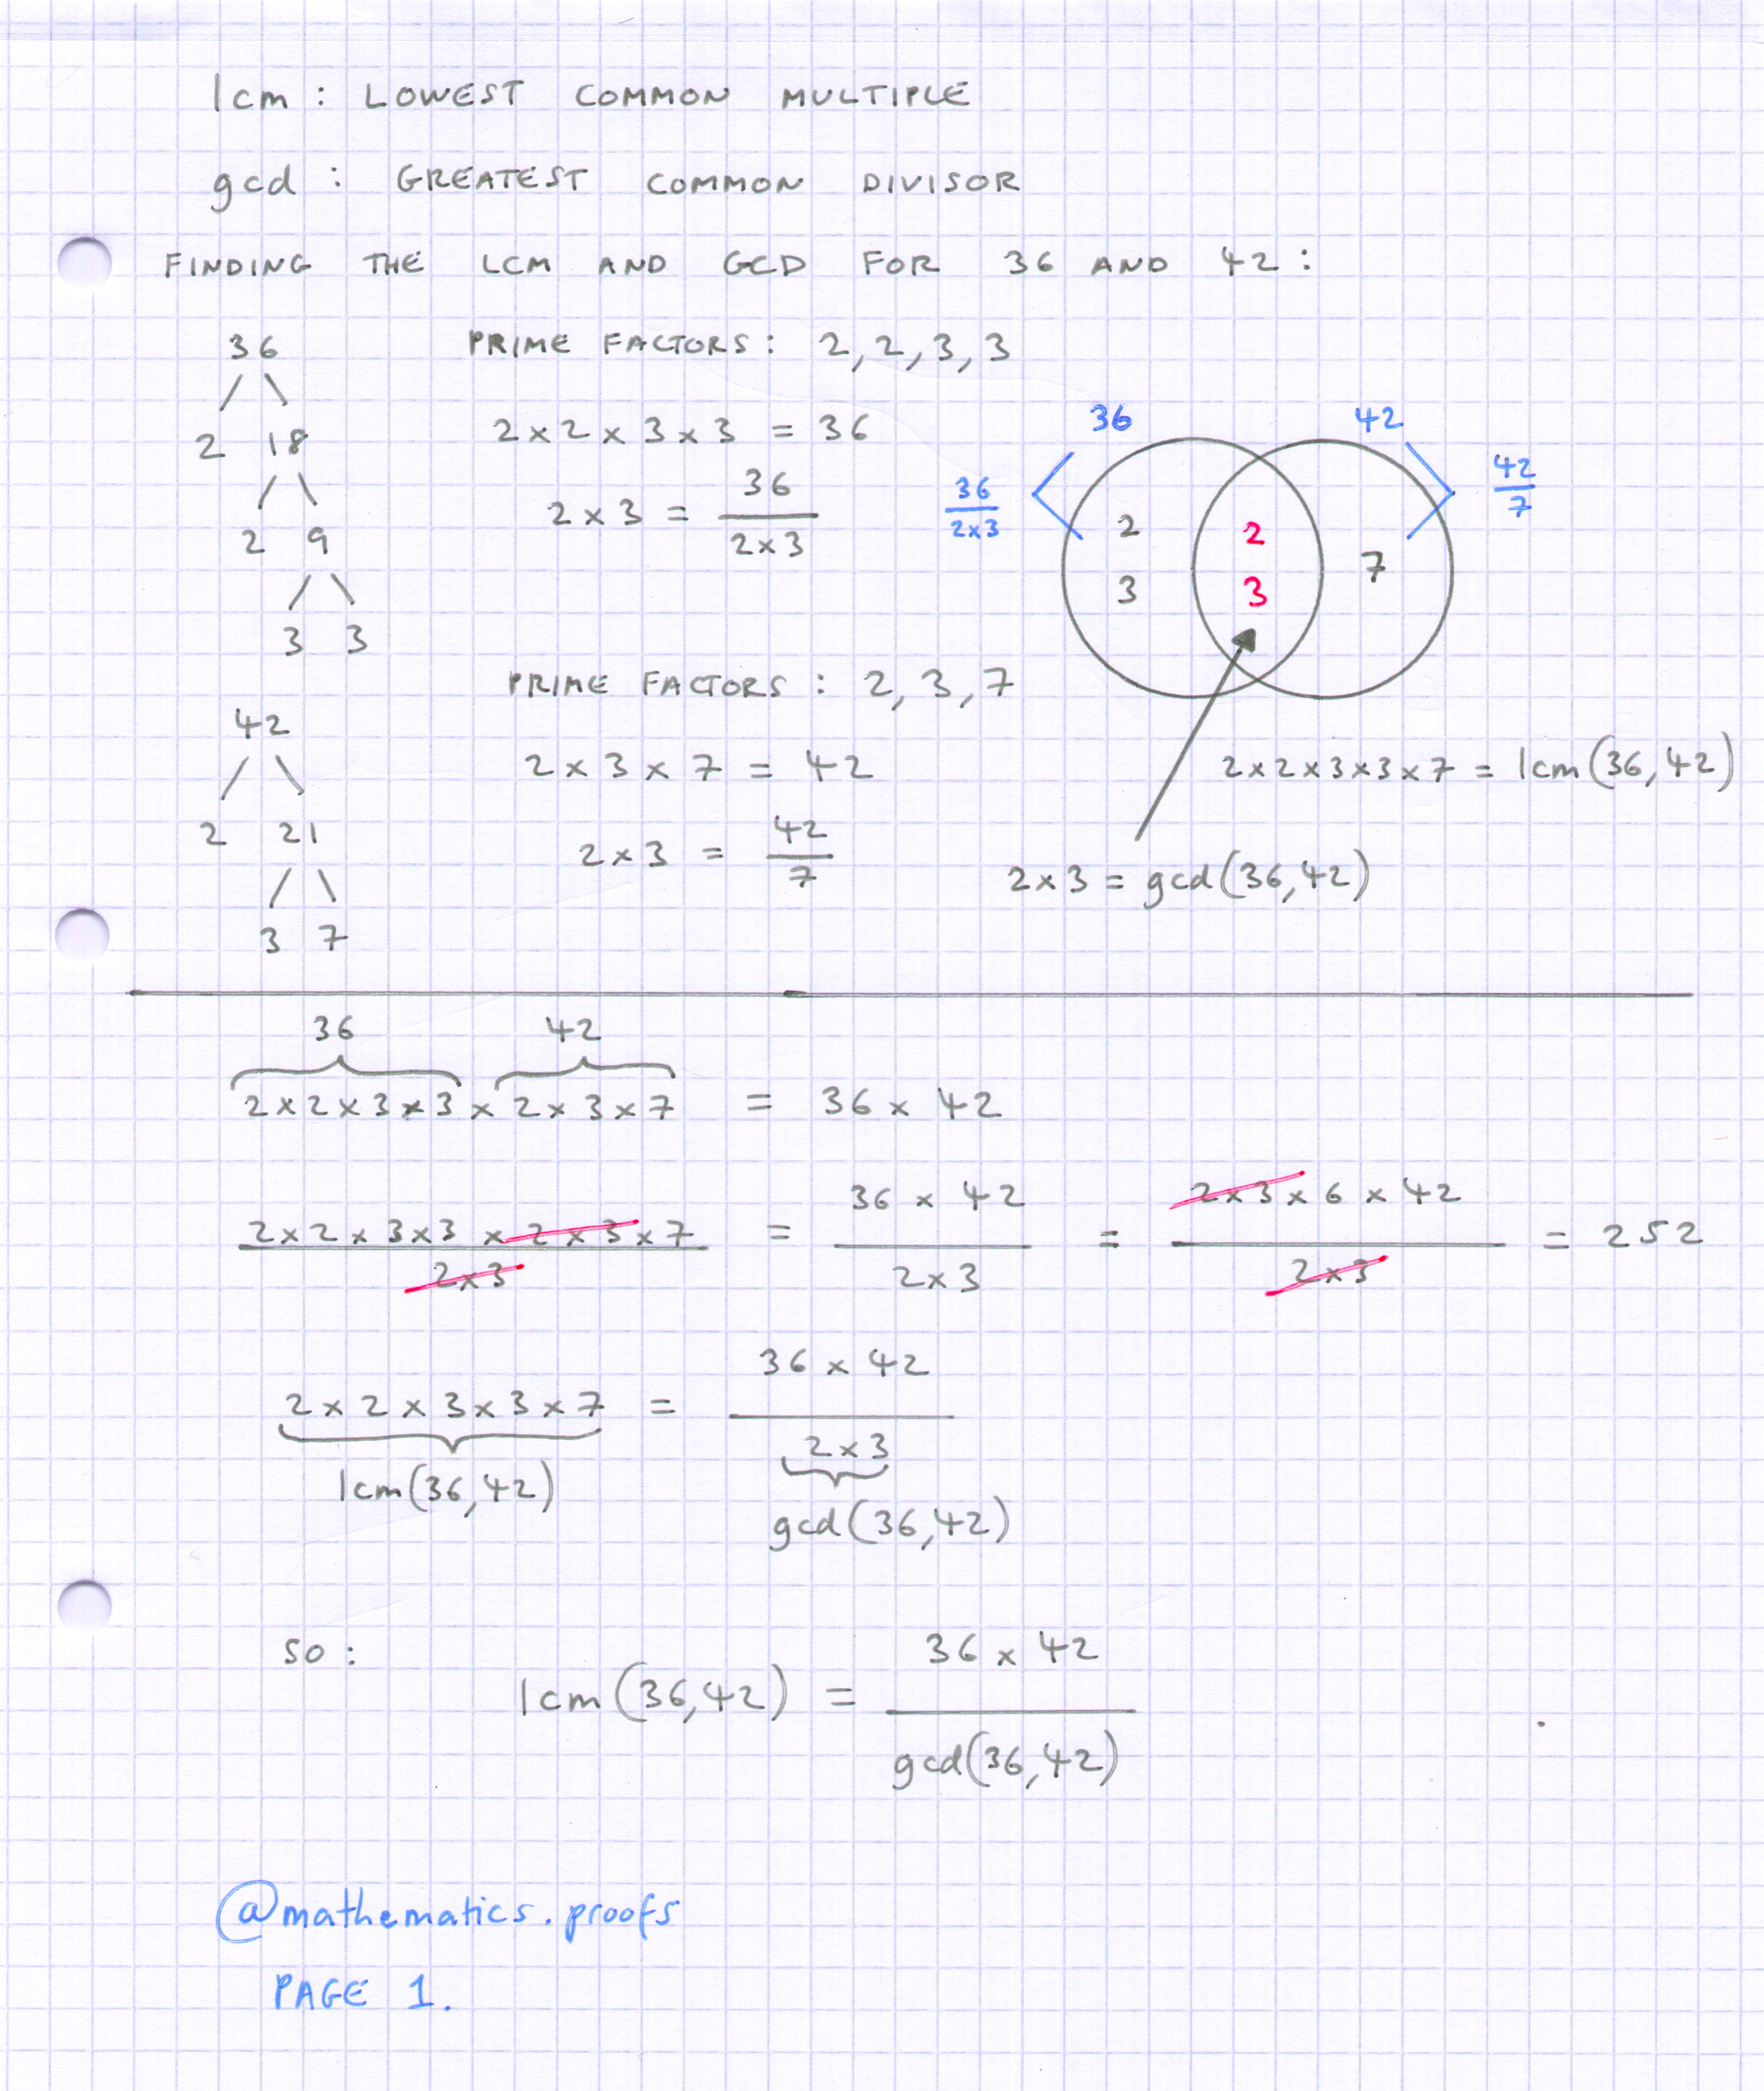 lcm : LOWEST COMMON MULTIPLE
gcd : GREATEST COMMON DIVISOR
FINDING THE LCM AND GCD FOR 36 AND 42 :
36
2 18
2 9
3 3
PRIME FACTORS : 2, 2, 3, 3
2 × 2 × 3 × 3 = 36
2 × 3 = 36 / 2 × 3
36 42
36 / 2×3
42 / 7
2 2
3 3 7
42
2 21
3 7
PRIME FACTORS : 2, 3, 7
2 × 3 × 7 = 42
2 × 3 = 42 / 7
2×2×3×3×7 = lcm(36,42)
2×3 = gcd(36,42)
36 42
2×2×3×3 × 2×3×7 = 36 × 42
2×2×3×3 × 2×3 × 7 / 2×3 = 36 × 42 / 2×3 = 2×3×6×42 / 2×3 = 252
2 × 2 × 3 × 3 × 7 = 36 × 42 / 2×3
lcm(36,42)
gcd(36,42)
SO : lcm(36,42) = 36 × 42 / gcd(36,42)
@mathematics.proofs
PAGE 1.